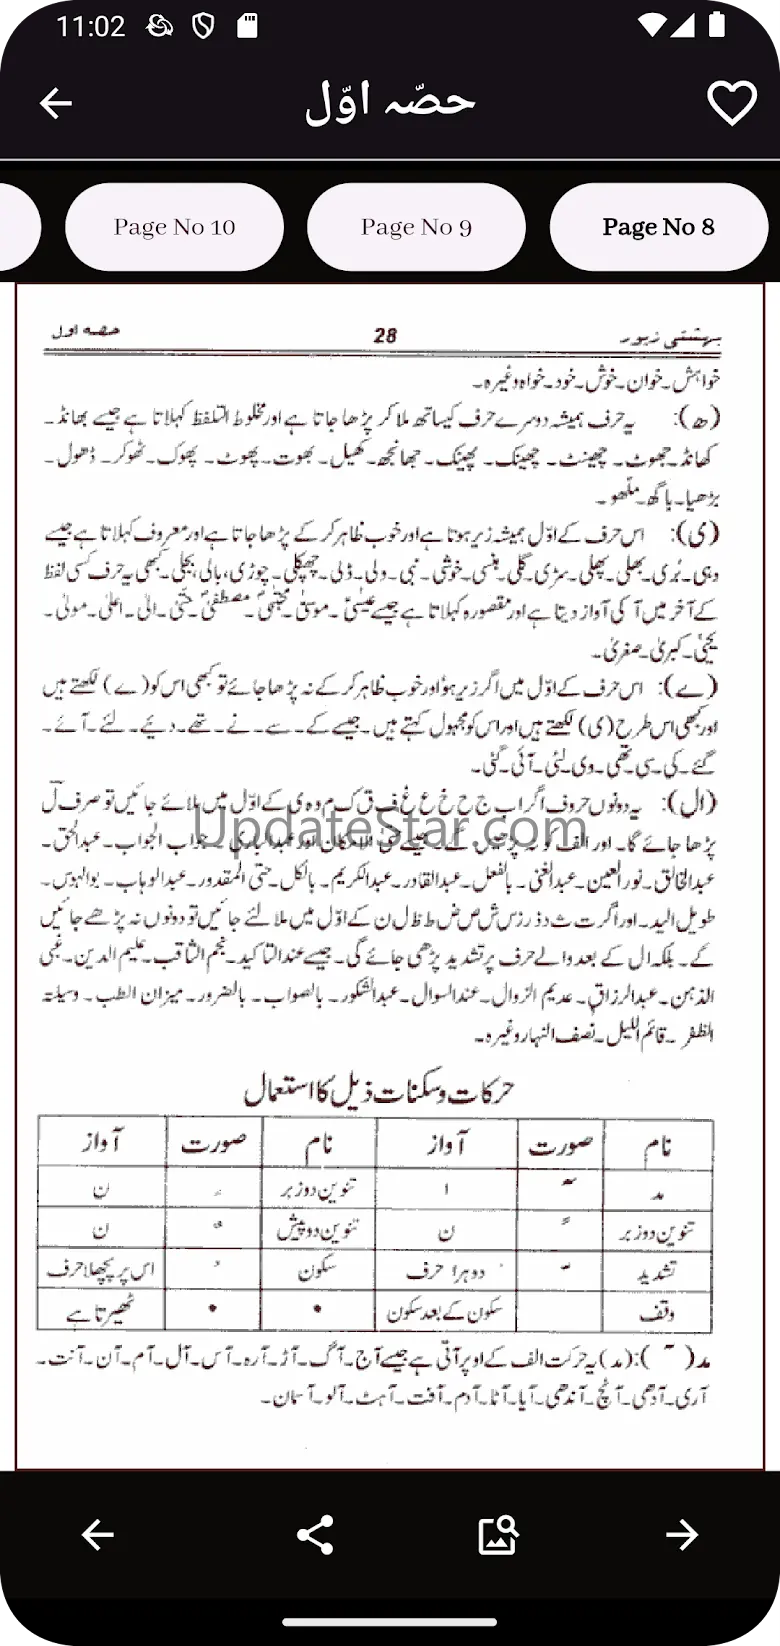 11:02
حصّہ اوّل
Page No 10
Page No 9
Page No 8
بہشتی زیور
28
حصہ اول
خواہش۔خوان۔خوش۔خود۔خواہ وغیرہ۔
(ھ): یہ حرف ہمیشہ دوسرے حرف کیساتھ ملا کر پڑھا جاتا ہے اور مخلوط التلفظ کہلاتا ہے جیسے بھانڈ۔
کھانڈ۔جھوٹ۔ چھینٹ۔ چھینک۔ پھینک۔ جھانجھ۔کھیل۔ بھوت۔ پھوٹ۔ پھوک۔ ٹھوکر۔ ڈھول۔
بڑھیا۔باگھ۔ملھو۔
(ی): اس حرف کے اوّل ہمیشہ زیر ہوتا ہے اور خوب ظاہر کر کے پڑھا جاتا ہے اور معروف کہلاتا ہے جیسے
وہی۔بُری۔بھلی۔پھلی۔سڑی۔گلی۔ہنسی۔خوشی۔نبی۔ولی۔ڈلی۔چھپکلی۔چوڑی،بالی،بجلی۔کبھی یہ حرف کسی لفظ
کے آخر میں آ کی آواز دیتا ہے اور مقصورہ کہلاتا ہے جیسے عیسیٰ۔موسیٰ۔مجتبیٰ۔مصطفیٰ۔حتیٰ۔الیٰ۔اعلیٰ۔مولیٰ۔
یحییٰ۔کبریٰ۔صغریٰ۔
(ے): اس حرف کے اوّل میں اگر زیر ہو اور خوب ظاہر کر کے نہ پڑھا جائے تو کبھی اس کو (ے) لکھتے ہیں
اور کبھی اس طرح (ی) لکھتے ہیں اور اس کو مجہول کہتے ہیں۔جیسے کے۔سے۔نے۔تھے۔دیئے۔لئے۔آئے۔
گئے۔کی۔سی۔تھی۔وی۔لئی۔آئی۔گئی۔
(ال): یہ دونوں حروف اگر اب ج ح خ ع غ ف ق ک م و ہ ی کے اوّل میں ملائے جائیں تو صرف ل
پڑھا جائے گا۔اور الف کو نہ پڑھیں گے۔جیسے حتی الامکان اور عبدالباری۔جواب الجواب۔عبدالحق۔
عبدالخالق۔نورالعین۔عبدالغنی۔بالفعل۔عبدالقادر۔عبدالکریم۔بالکل۔حتی المقدور۔عبدالوہاب۔بوالہوس۔
طویل الید۔اور اگر ت ث د ذ ر ز س ش ص ض ط ظ ل ن کے اوّل میں ملا لئے جائیں تو دونوں نہ پڑھے جائیں
گے۔بلکہ ال کے بعد والے حرف پر تشدید پڑھی جائے گی۔جیسے عندالتاکید۔نجم الثاقب۔علیم الدین۔غبی
الذہن۔عبدالرزاق۔عدیم الزوال۔عندالسوال۔عبدالشکور۔بالصواب۔بالضرور۔میزان الطب۔وسیلتہ
الظفر۔قائم اللیل۔نصف النہار وغیرہ۔
UpdateStar.com
حرکات و سکنات ذیل کا استعمال
نام صورت آواز نام صورت آواز
مد ٓ ا تنوین دو زیر ٍ ن
تنوین دو زبر ً ن تنوین دو پیش ٌ ن
تشدید ّ دوہرا حرف سکون ْ اس پر پچھلا حرف
وقف سکون کے بعد سکون • • ٹھیرتا ہے
مد( ٓ ):(مد) یہ حرکت الف کے اوپر آتی ہے جیسے آج۔آگ۔آڑ۔آرہ۔آس۔آل۔آم۔آن۔آنت۔
آری۔آدھی۔آنچ۔آندھی۔آیا۔آٹا۔آدم۔آفت۔آہٹ۔آلو۔آسان۔